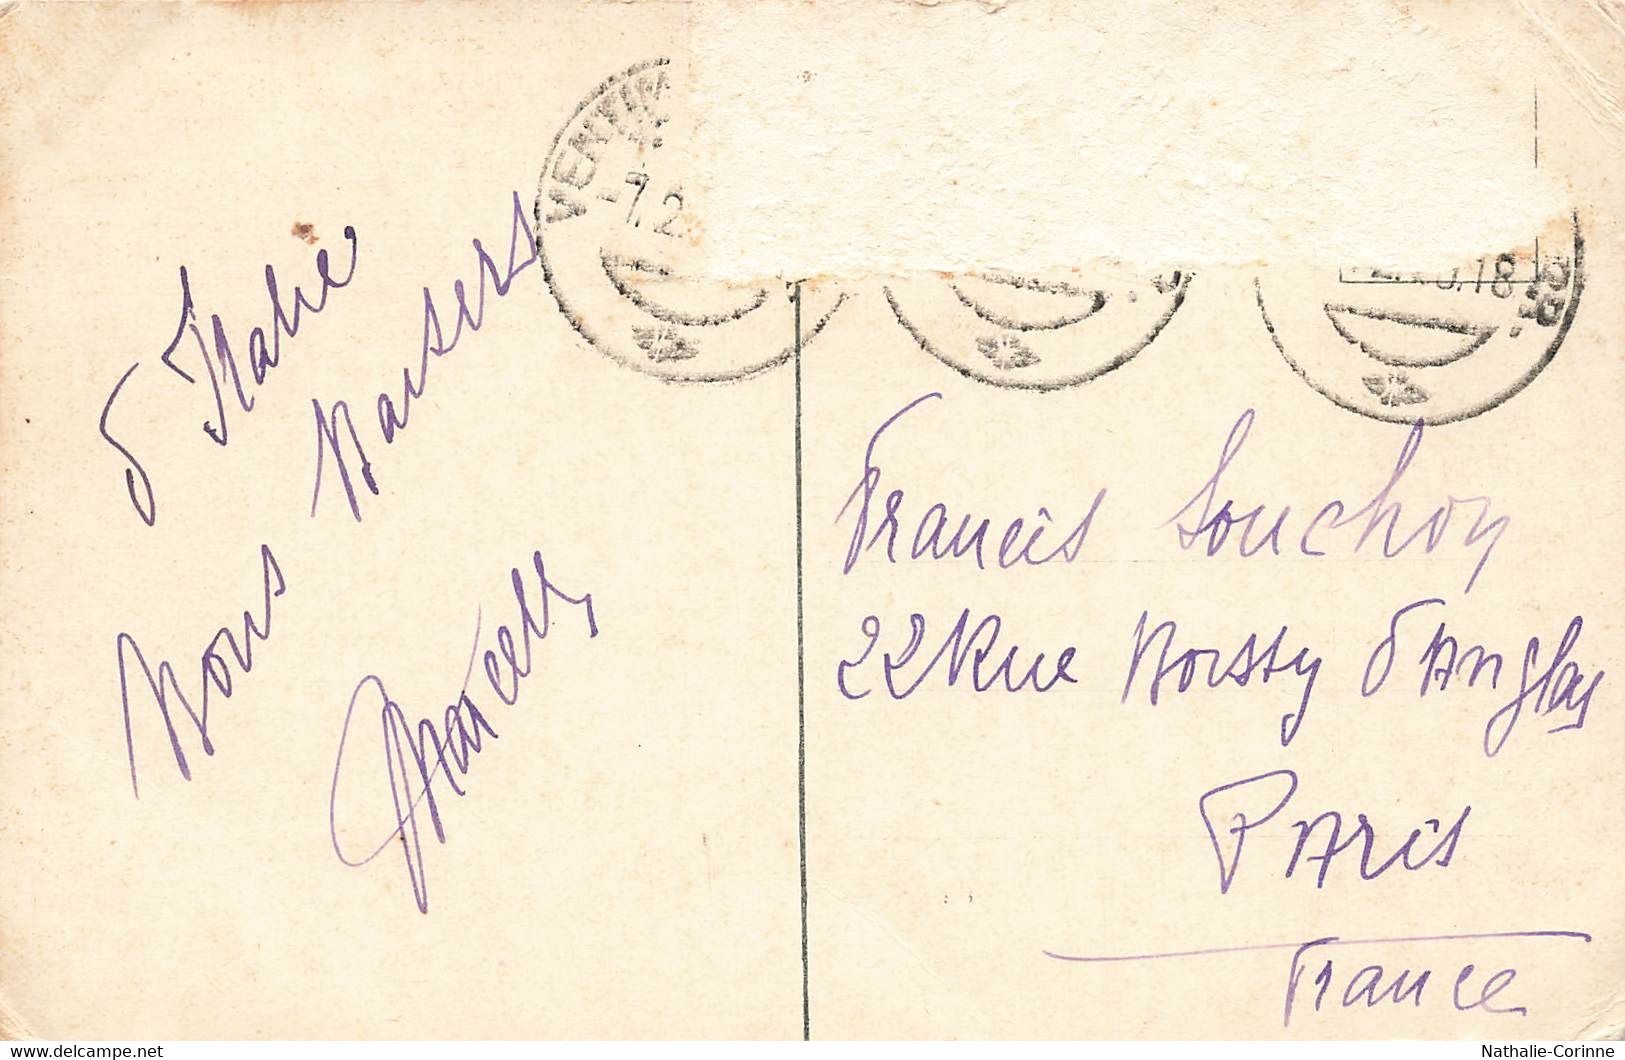 d'Italie
Bons Baisers
Marcelly
VENTIM
-7.2
.18
Francis Souchoy
22 Rue Boissy d'Anglas
PAris
France
www.delcampe.net
Nathalie-Corinne